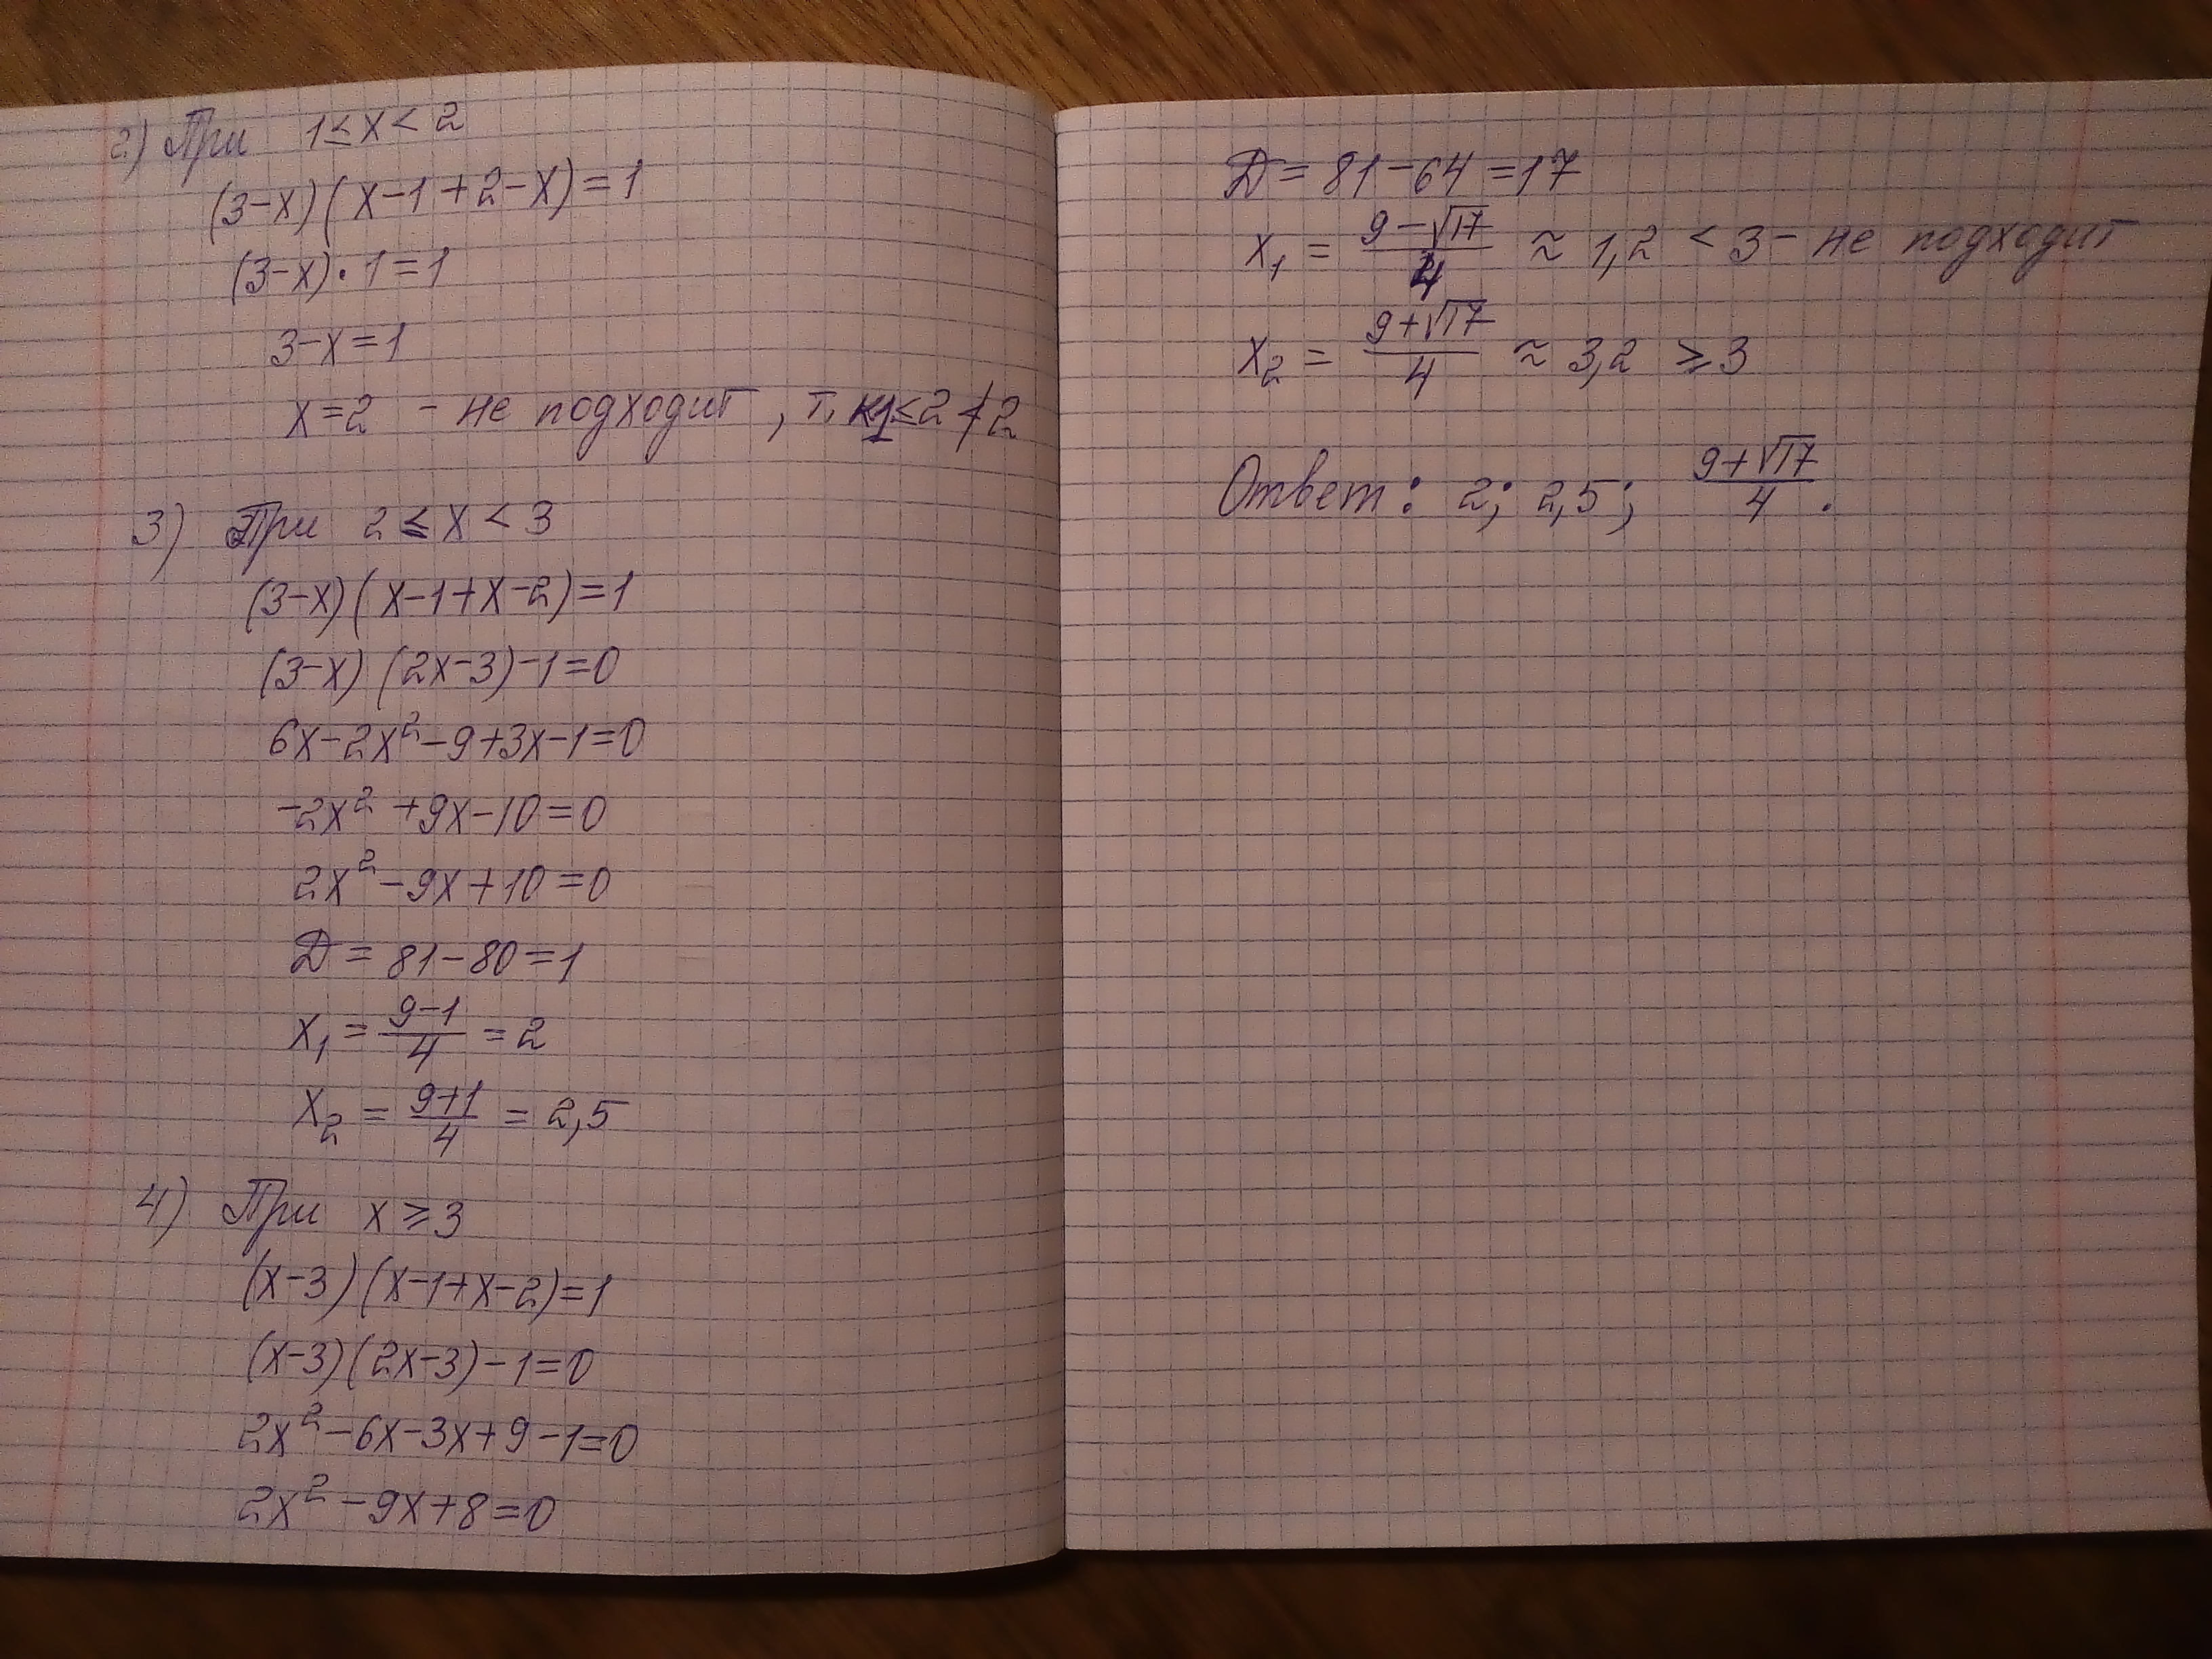 2) При 1 ≤ x < 2
(3-x)(x-1+2-x)=1
(3-x)·1=1
3-x=1
x=2 - не подходит, т.к 1≤2≮2
3) При 2 ≤ x < 3
(3-x)(x-1+x-2)=1
(3-x)(2x-3)-1=0
6x-2x²-9+3x-1=0
-2x²+9x-10=0
2x²-9x+10=0
Д = 81-80=1
x₁ = (9-1)/4 = 2
x₂ = (9+1)/4 = 2,5
4) При x ≥ 3
(x-3)(x-1+x-2)=1
(x-3)(2x-3)-1=0
2x²-6x-3x+9-1=0
2x²-9x+8=0
Д = 81-64=17
x₁ = (9-√17)/4 ≈ 1,2 < 3 - не подходит
x₂ = (9+√17)/4 ≈ 3,2 ≥ 3
Ответ: 2; 2,5; (9+√17)/4.